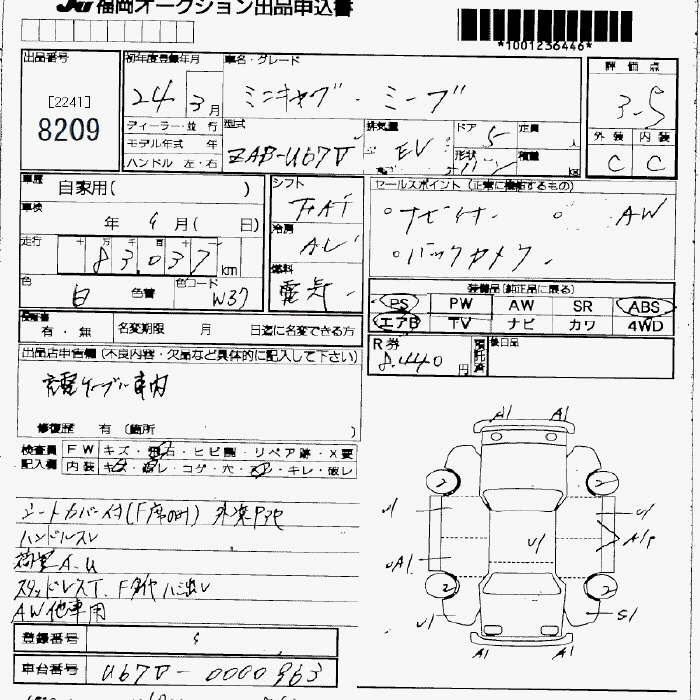 JU福岡オークション出品申込書
*1001236446*
出品番号
[2241]
8209
初年度登録年月
24 3月
車名・グレード
ミニキャブ・ミーブ
評価点
3.5
外装 内装
C C
ディーラー・並行
モデル年式 年
ハンドル 左・右
型式
ZAB-U67V
排気量
EV
ドア 5
形状
定員 人
積載
車歴
自家用( )
車検
年 9月( 日)
走行
十 万 千 百 十
83,037 km
色
白 色替
色コード
W37
シフト
FAT
冷房
AC
燃料
電気
セールスポイント(正常に機能するもの)
ナビ AW
バックカメラ
装備品(純正品に限る)
PS PW AW SR ABS
エアB TV ナビ カワ 4WD
有・無 名変期限 月 日迄に名変できる方
R券
8,440円
預託済
後日品
出品店申告欄(不良内容・欠品など具体的に記入して下さい)
充電ケーブル車内
修復歴 有(箇所 )
検査員記入欄
FW キズ・飛石・ヒビ割・リペア跡・X要
内装 キズ・汚レ・コゲ・穴・スレ・キレ・破レ
シートカバー付(F席のみ)
ハンドルスレ
荷室A.U
スタッドレスT. Fタイヤハミ出し
AW他車用
登録番号
車台番号 U67V-0000963
A1 A1
2 2
U1 U1
U1 A1P
UA1
2 2
U1 S1
A1 A1